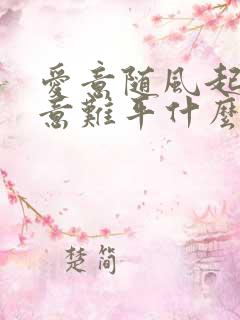 愛意随風起
意難平什麼
楚简